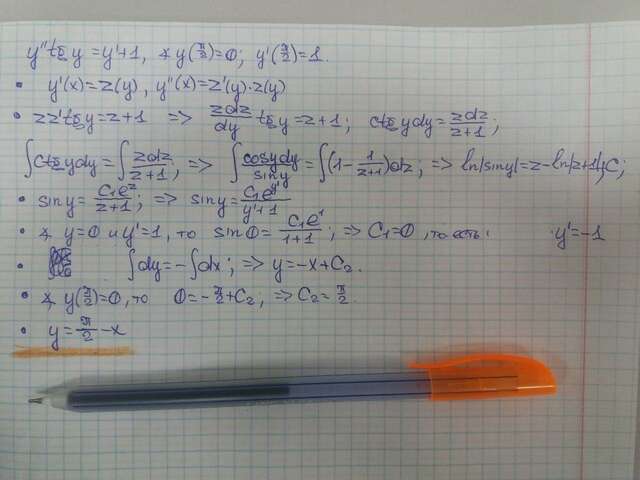 y'' tg y = y'+1, ∢ y(π/2)=0; y'(π/2)=1.
• y'(x)=z(y), y''(x)=z'(y)·z(y)
• zz' tg y = z+1 => zdz/dy tg y = z+1; ctg y dy = zdz/z+1;
∫ctg y dy = ∫zdz/z+1; => ∫cos y dy/sin y = ∫(1 - 1/z+1)dz; => ln|sin y| = z - ln|z+1| + C;
• sin y = C₁e^z/z+1; => sin y = C₁e^y'/y'+1
• ∢ y=0 и y'=1, то sin 0 = C₁e^1/1+1; => C₁=0, то есть: y'=-1
• ∫dy = -∫dx; => y=-x+C₂.
• ∢ y(π/2)=0, то 0=-π/2+C₂; => C₂=π/2.
• y=π/2-x